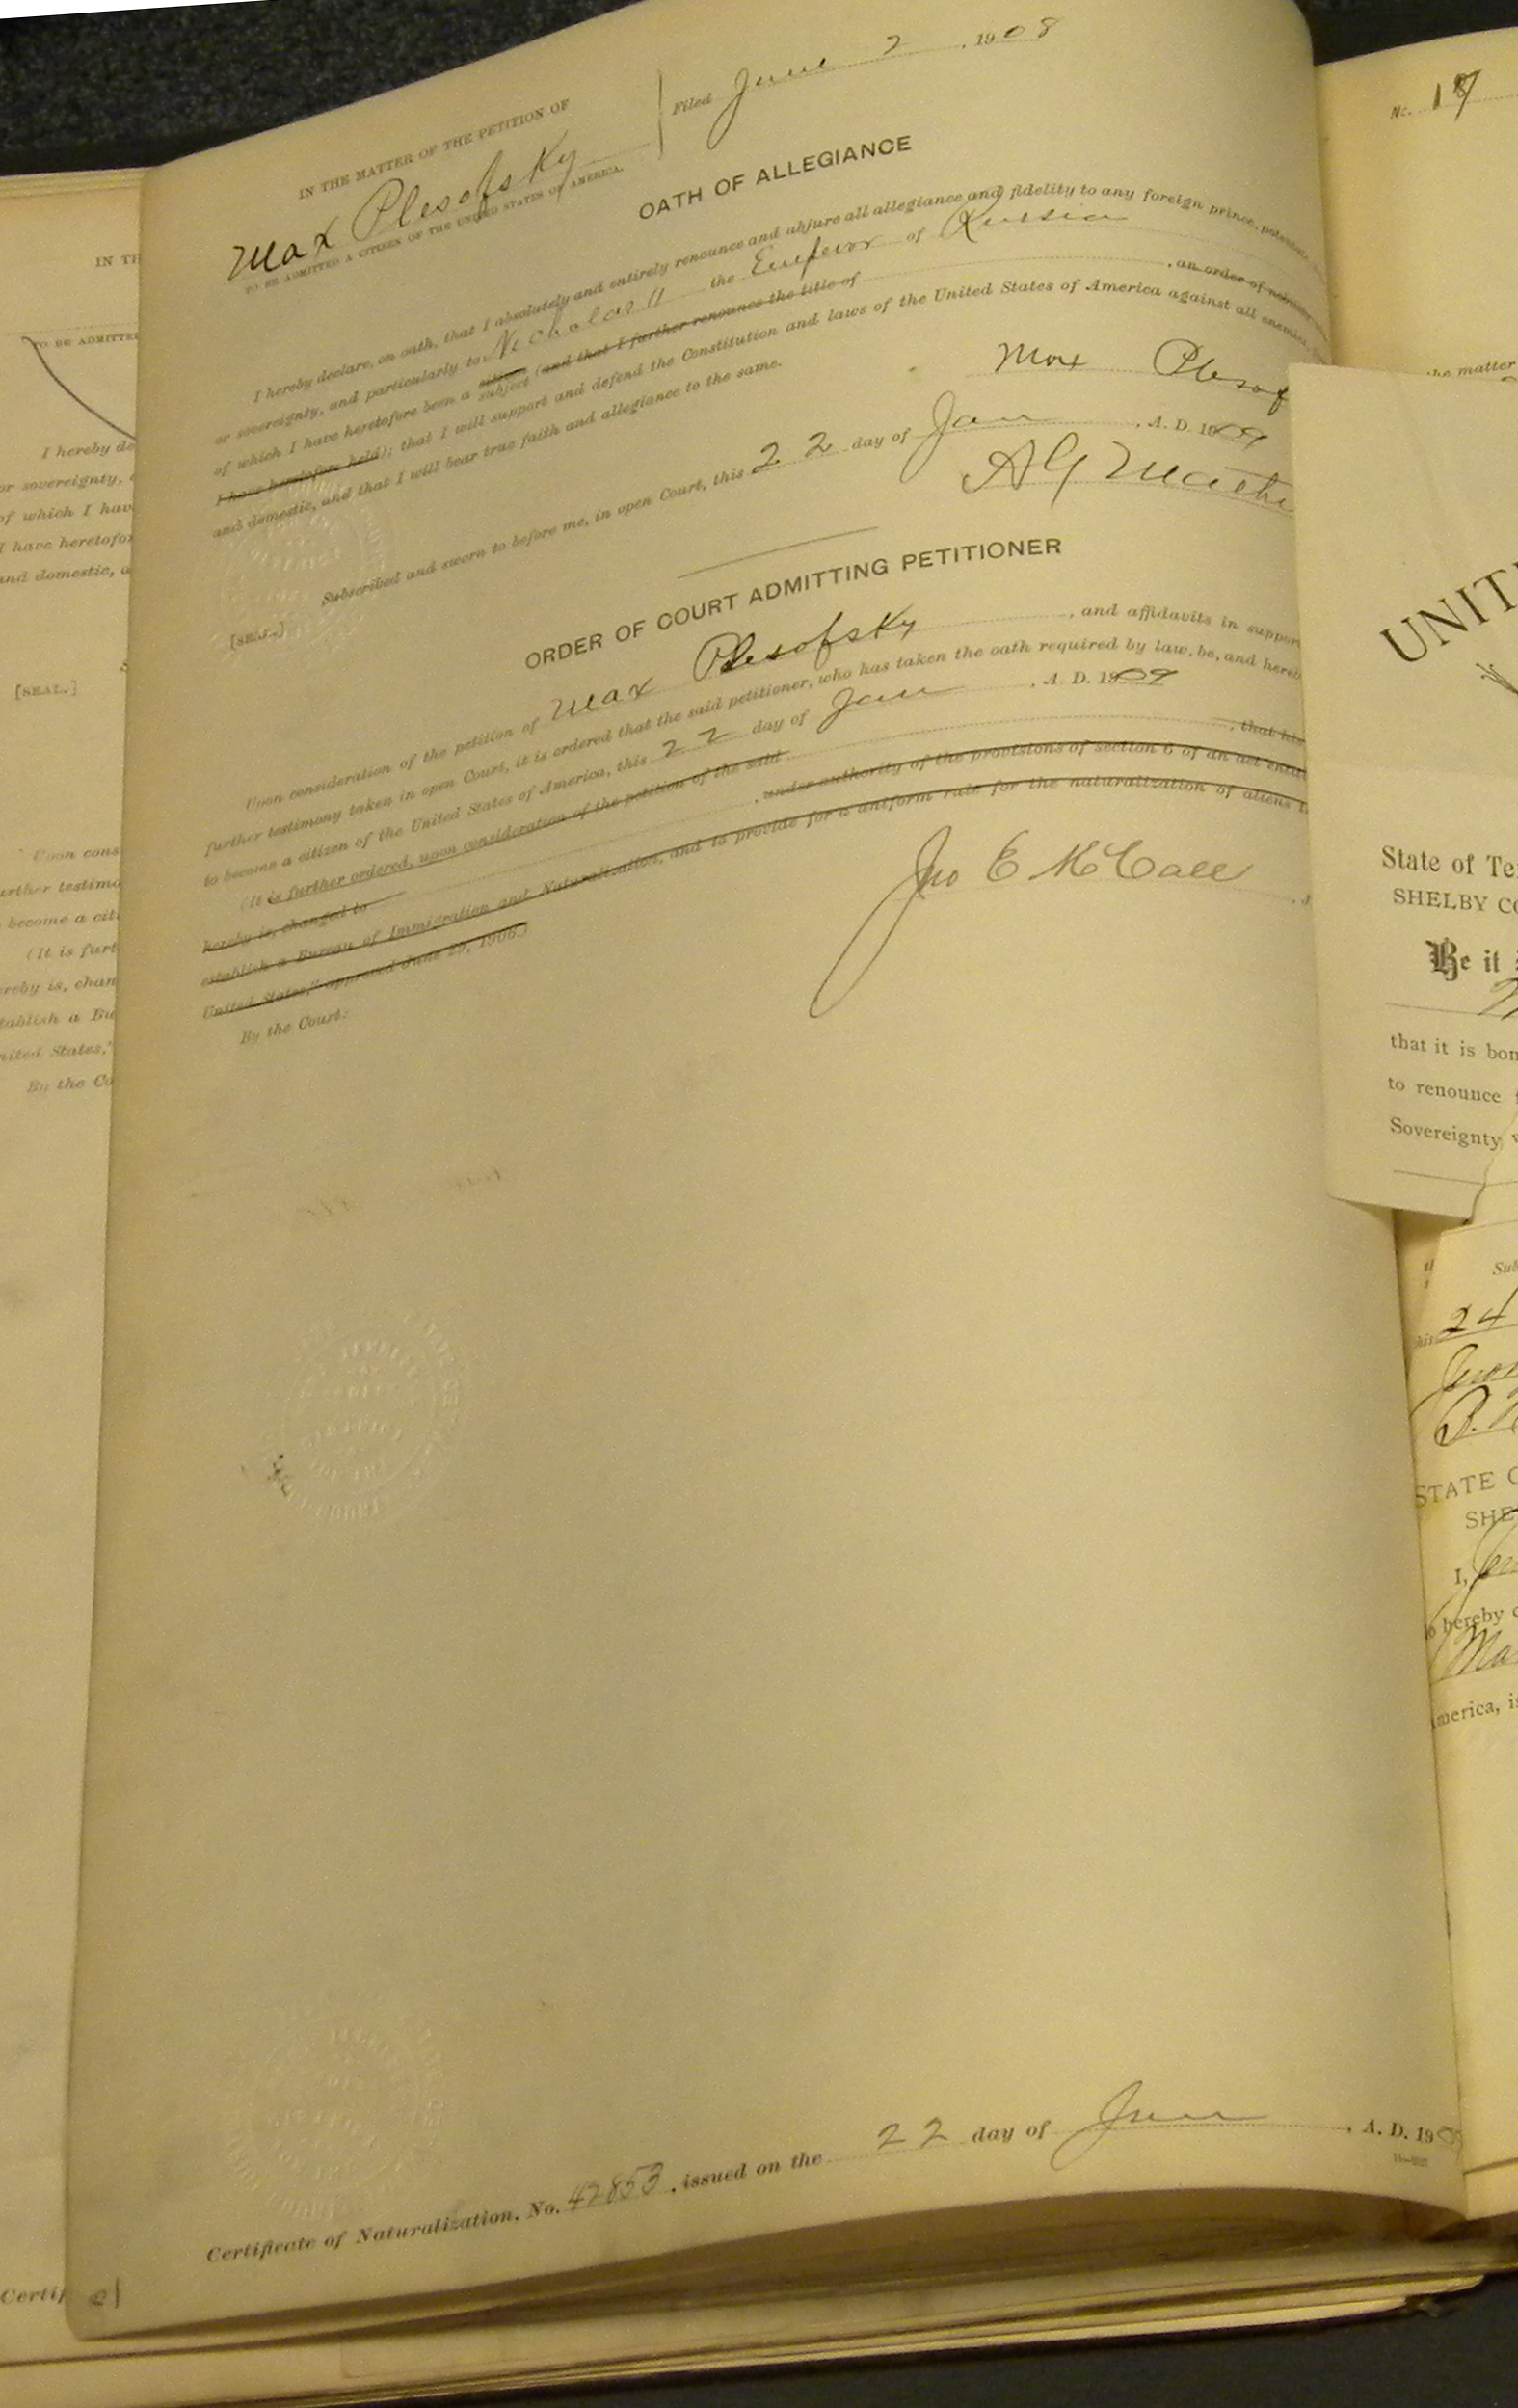 IN THE MATTER OF THE PETITION OF
Max Plesofsky
TO BE ADMITTED A CITIZEN OF THE UNITED STATES OF AMERICA.
Filed June 2, 1908
OATH OF ALLEGIANCE
I hereby declare, on oath, that I absolutely and entirely renounce and abjure all allegiance and fidelity to any foreign prince, potentate,
or sovereignty, and particularly to Nicholas II the Emperor of Russia
of which I have heretofore been a citizen subject (and that I further renounce the title of , an order of
I have heretofore held); that I will support and defend the Constitution and laws of the United States of America against all enemies,
and domestic, and that I will bear true faith and allegiance to the same.
Max Plesof
Subscribed and sworn to before me, in open Court, this 22 day of Jan, A. D. 1909
[SEAL.]
ORDER OF COURT ADMITTING PETITIONER
Upon consideration of the petition of Max Plesofsky, and affidavits in support
further testimony taken in open Court, it is ordered that the said petitioner, who has taken the oath required by law, be, and hereb
to become a citizen of the United States of America, this 22 day of Jan, A. D. 1909
(It is further ordered, upon consideration of the petition of the said , that his
hereby is, changed to , under authority of the provisions of section 6 of an act
establish a Bureau of Immigration and Naturalization, and to provide for a uniform rule for the naturalization of aliens
United States," approved June 29, 1906.)
By the Court:
Jno E McCall
Certificate of Naturalization, No. 42853, issued on the 22 day of Jan, A. D. 19
IN TH
TO BE ADMITTED
I hereby de
or sovereignty,
of which I hav
I have heretofor
and domestic, a
[SEAL.]
Upon cons
urther testimo
become a cit
(It is furt
ereby is, chan
tablish a Bu
nited States,"
By the Co
Certif
No. 18
the matter
UNIT
State of Te
SHELBY CO
Be it
that it is bon
to renounce
Sovereignty
Sub
24
STATE O
SHE
I,
hereby
Ma
merica, is